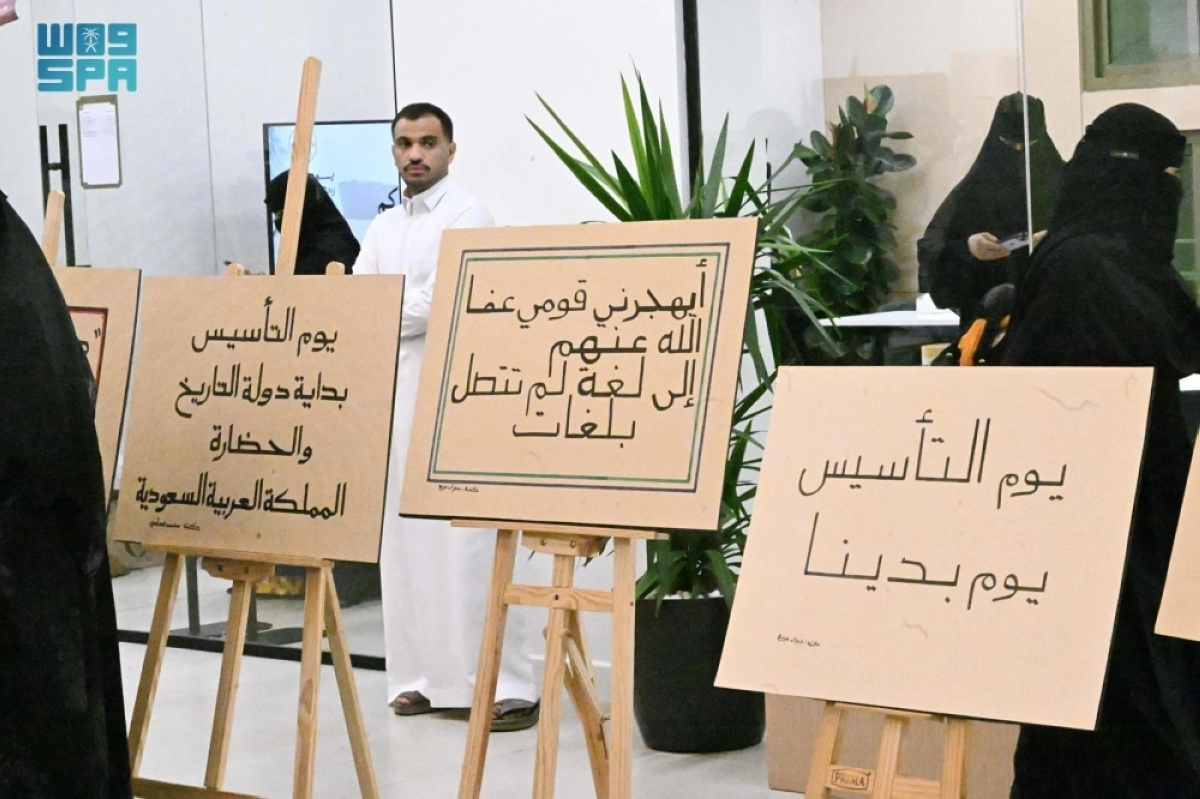 واس
SPA
يوم التأسيس
بداية دولة التاريخ
والحضارة
المملكة العربية السعودية
أيهجرني قومي عفا
الله عنهم
إلى لغة لم تتصل
بلغات
يوم التأسيس
يوم بدينا
PRIMA